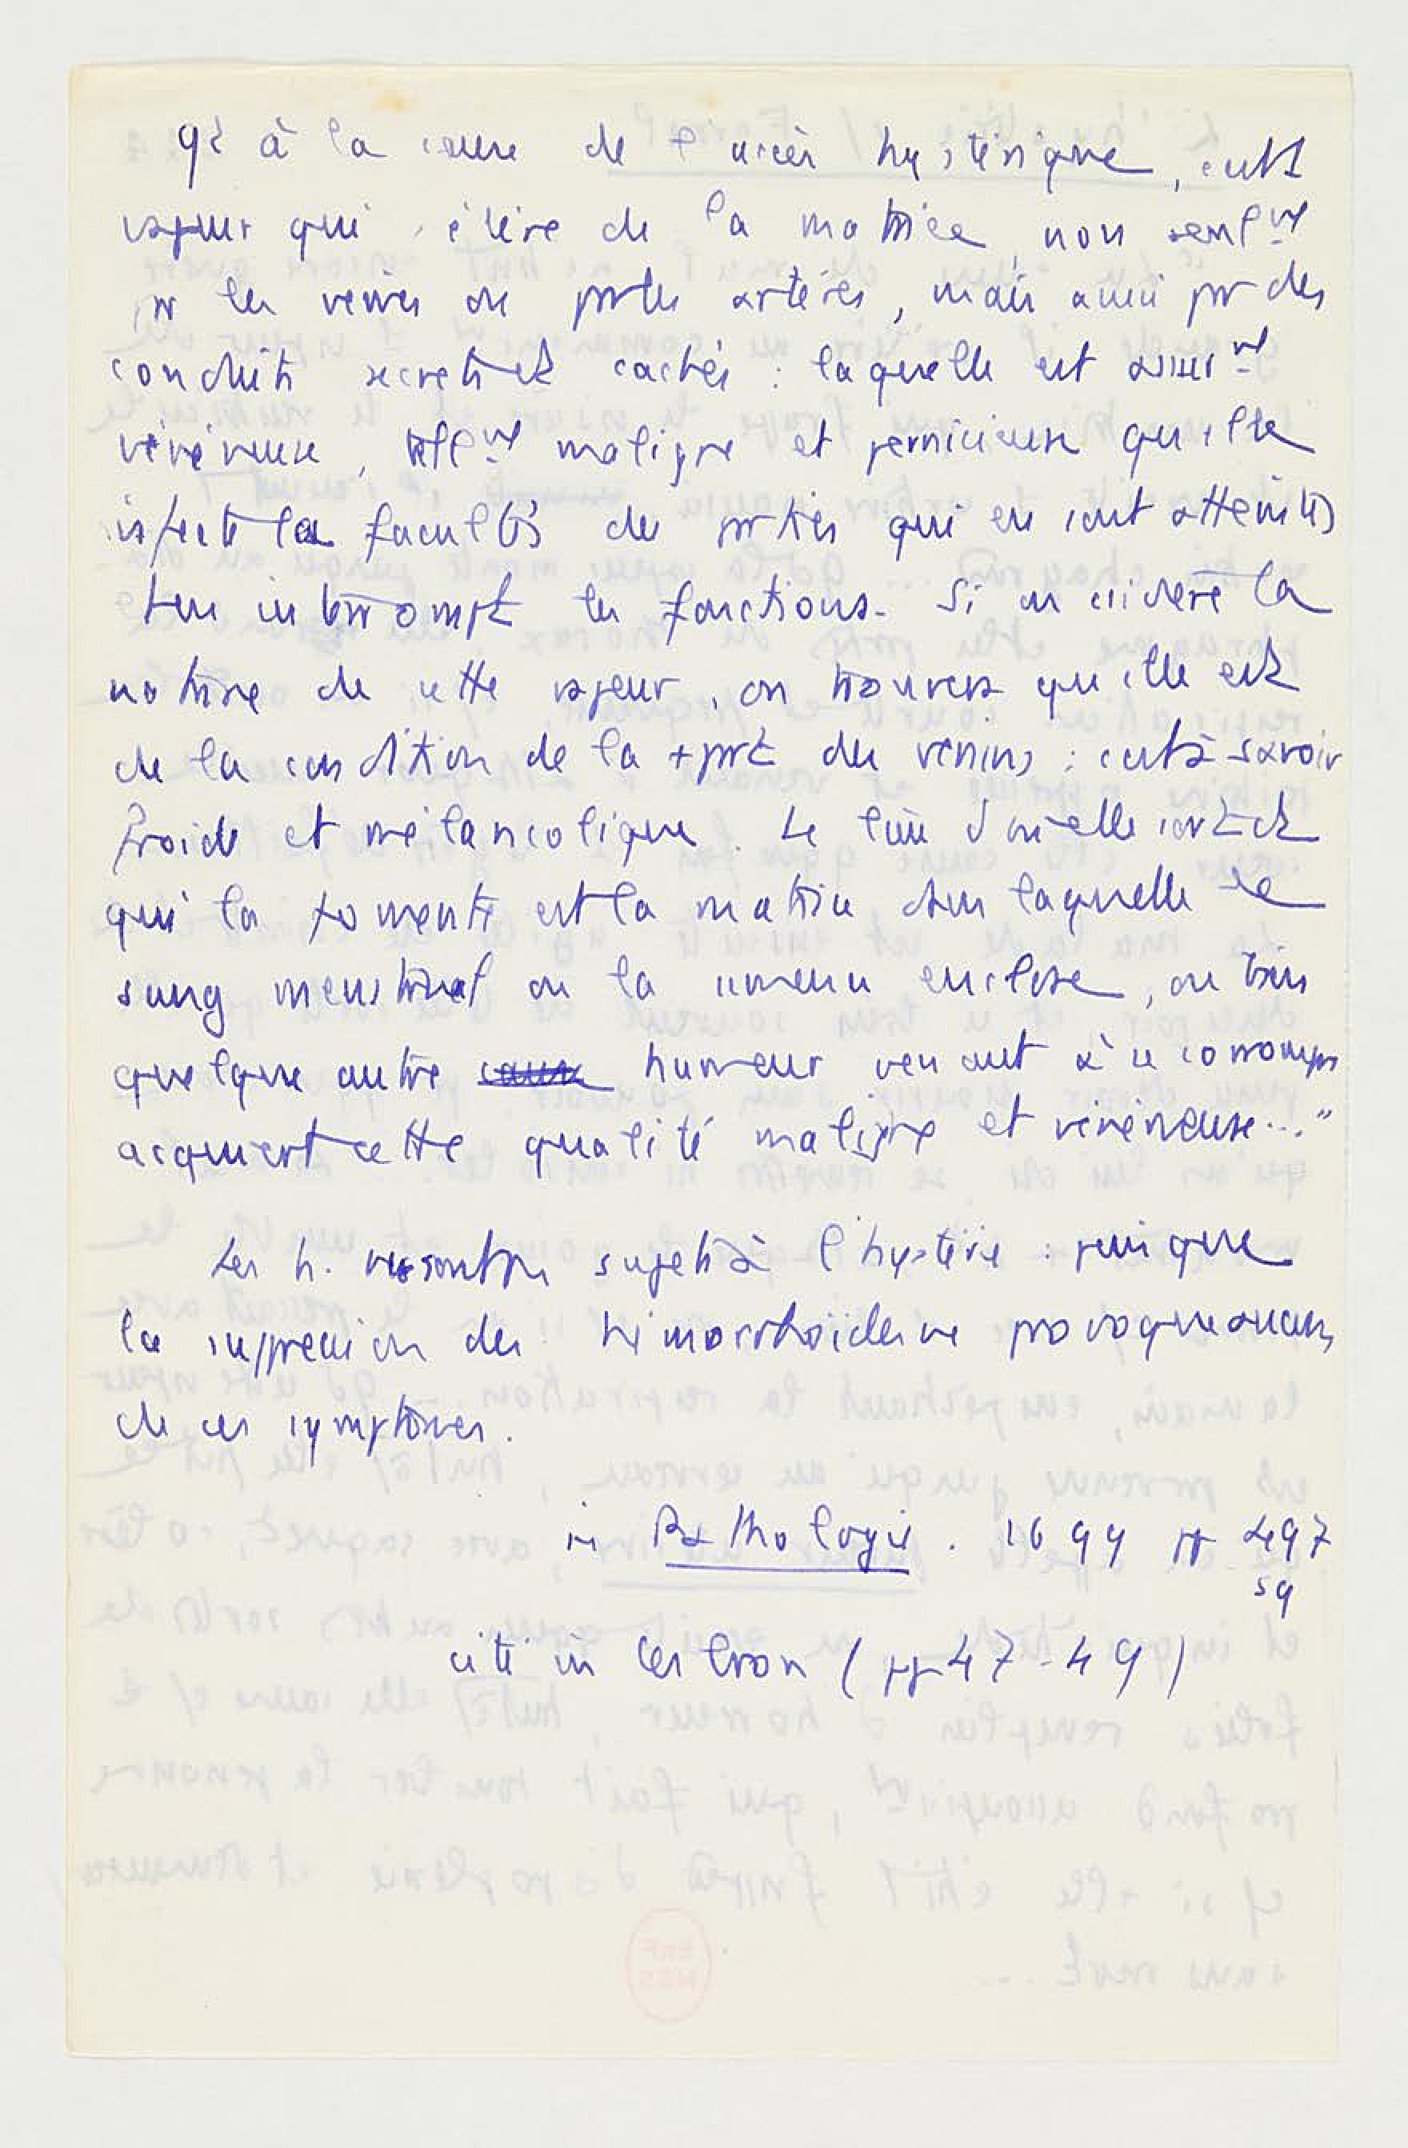 Qt à la cause de l'accès hystérique, c'est 1
vapeur qui s'élève de la matrice, non seulmt
pr les veines ou petites artères, mais aussi pr des
conduits secrets et cachés : laquelle est assurmt
vénéneuse, tellmt maligne et pernicieuse qu'elle
infecte les facultés des parties qui en sont atteintes
leur interrompt les fonctions. Si on csidère la
nature de cette vapeur, on trouvera qu'elle est
de la condition de la + part des venins : c'est-à-savoir
froide et mélancolique. Le lieu d'où elle sort et
qui la fomente est la matrice dans laquelle le
sang menstruel ou la semence enclose, ou bien
quelque autre humeur venant à se corrompre
acquiert cette qualité maligne et vénéneuse..."
Les h. ne sont pas sujets à l'hystérie : puisque
la suppression des hémorrhoïdes ne provoque aucun
de ces symptômes.
in Pathologie. 1699 pp 497
sq
cité in Cesbron (pp 47-49)